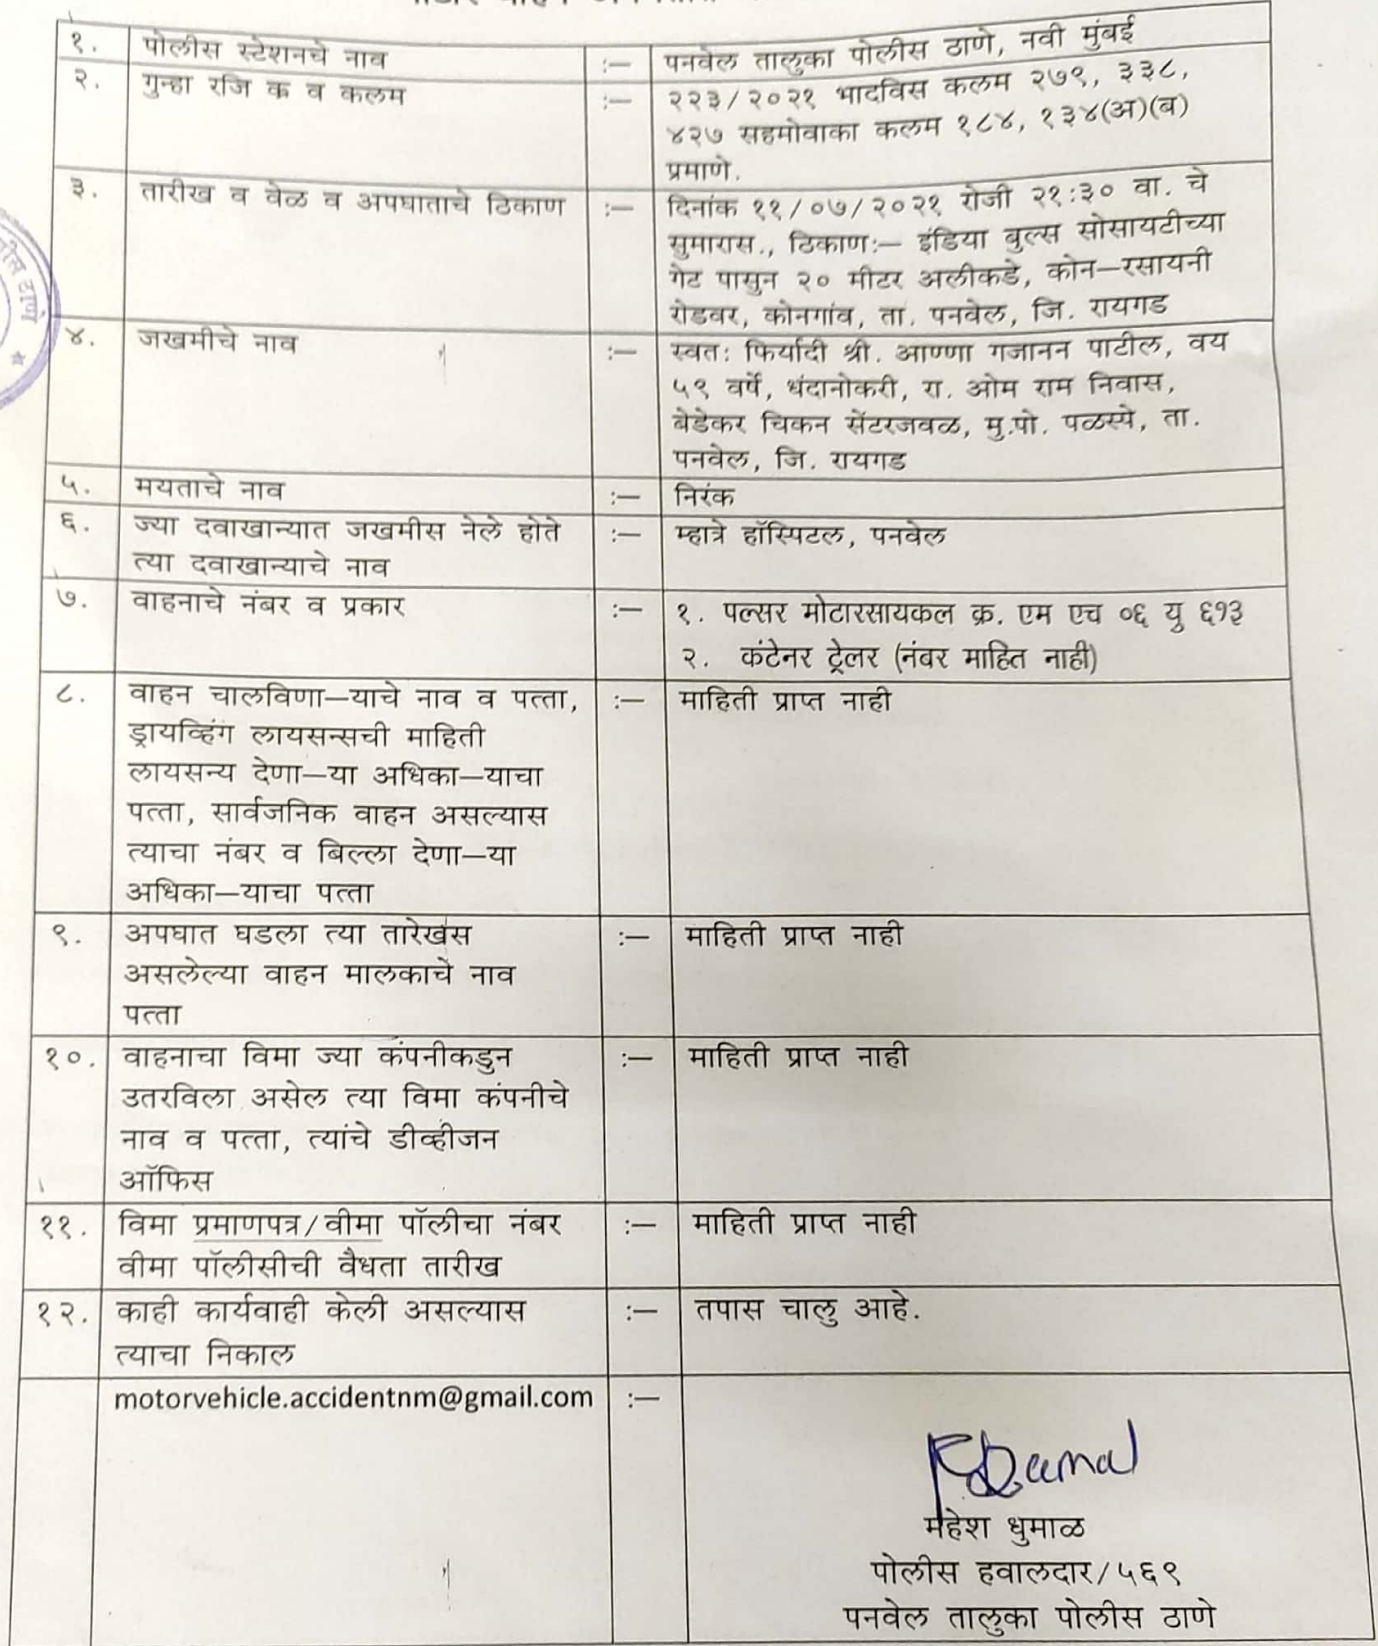 १. पोलीस स्टेशनचे नाव :— पनवेल तालुका पोलीस ठाणे, नवी मुंबई
२. गुन्हा रजि क व कलम :— २२३/२०२१ भादविस कलम २७९, ३३८,
४२७ सहमोवाका कलम १८४, १३४(अ)(ब)
प्रमाणे.
३. तारीख व वेळ व अपघाताचे ठिकाण :— दिनांक ११/०७/२०२१ रोजी २१:३० वा. चे
सुमारास., ठिकाण:— इंडिया बुल्स सोसायटीच्या
गेट पासुन २० मीटर अलीकडे, कोन—रसायनी
रोडवर, कोनगांव, ता. पनवेल, जि. रायगड
४. जखमीचे नाव :— स्वत: फिर्यादी श्री. आण्णा गजानन पाटील, वय
५९ वर्षे, धंदानोकरी, रा. ओम राम निवास,
बेडेकर चिकन सेंटरजवळ, मु.पो. पळस्पे, ता.
पनवेल, जि. रायगड
५. मयताचे नाव :— निरंक
६. ज्या दवाखान्यात जखमीस नेले होते :— म्हात्रे हॉस्पिटल, पनवेल
त्या दवाखान्याचे नाव
७. वाहनाचे नंबर व प्रकार :— १. पल्सर मोटारसायकल क्र. एम एच ०६ यु ६१३
२. कंटेनर ट्रेलर (नंबर माहित नाही)
८. वाहन चालविणा—याचे नाव व पत्ता, :— माहिती प्राप्त नाही
ड्रायव्हिंग लायसन्सची माहिती
लायसन्य देणा—या अधिका—याचा
पत्ता, सार्वजनिक वाहन असल्यास
त्याचा नंबर व बिल्ला देणा—या
अधिका—याचा पत्ता
९. अपघात घडला त्या तारेखस :— माहिती प्राप्त नाही
असलेल्या वाहन मालकाचे नाव
पत्ता
१०. वाहनाचा विमा ज्या कंपनीकडुन :— माहिती प्राप्त नाही
उतरविला असेल त्या विमा कंपनीचे
नाव व पत्ता, त्यांचे डीव्हीजन
ऑफिस
११. विमा प्रमाणपत्र/वीमा पॉलीचा नंबर :— माहिती प्राप्त नाही
वीमा पॉलीसीची वैधता तारीख
१२. काही कार्यवाही केली असल्यास :— तपास चालु आहे.
त्याचा निकाल
motorvehicle.accidentnm@gmail.com :—
महेश धुमाळ
पोलीस हवालदार/५६९
पनवेल तालुका पोलीस ठाणे